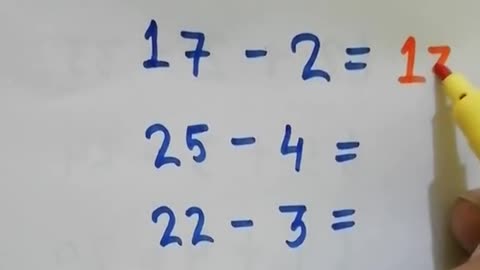 17 - 2 =
25 - 4 =
22 - 3 =